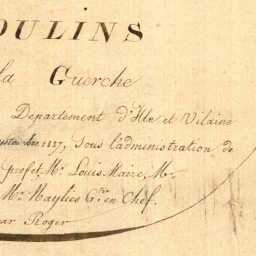 OULINS
la Guerche
Departement d'Ille et Vilaine
1817, Sous l'administration de
prefet, Mr. Louis Maire, Mr.
Mr. Maylies Gtre en Chef.
ar Roger